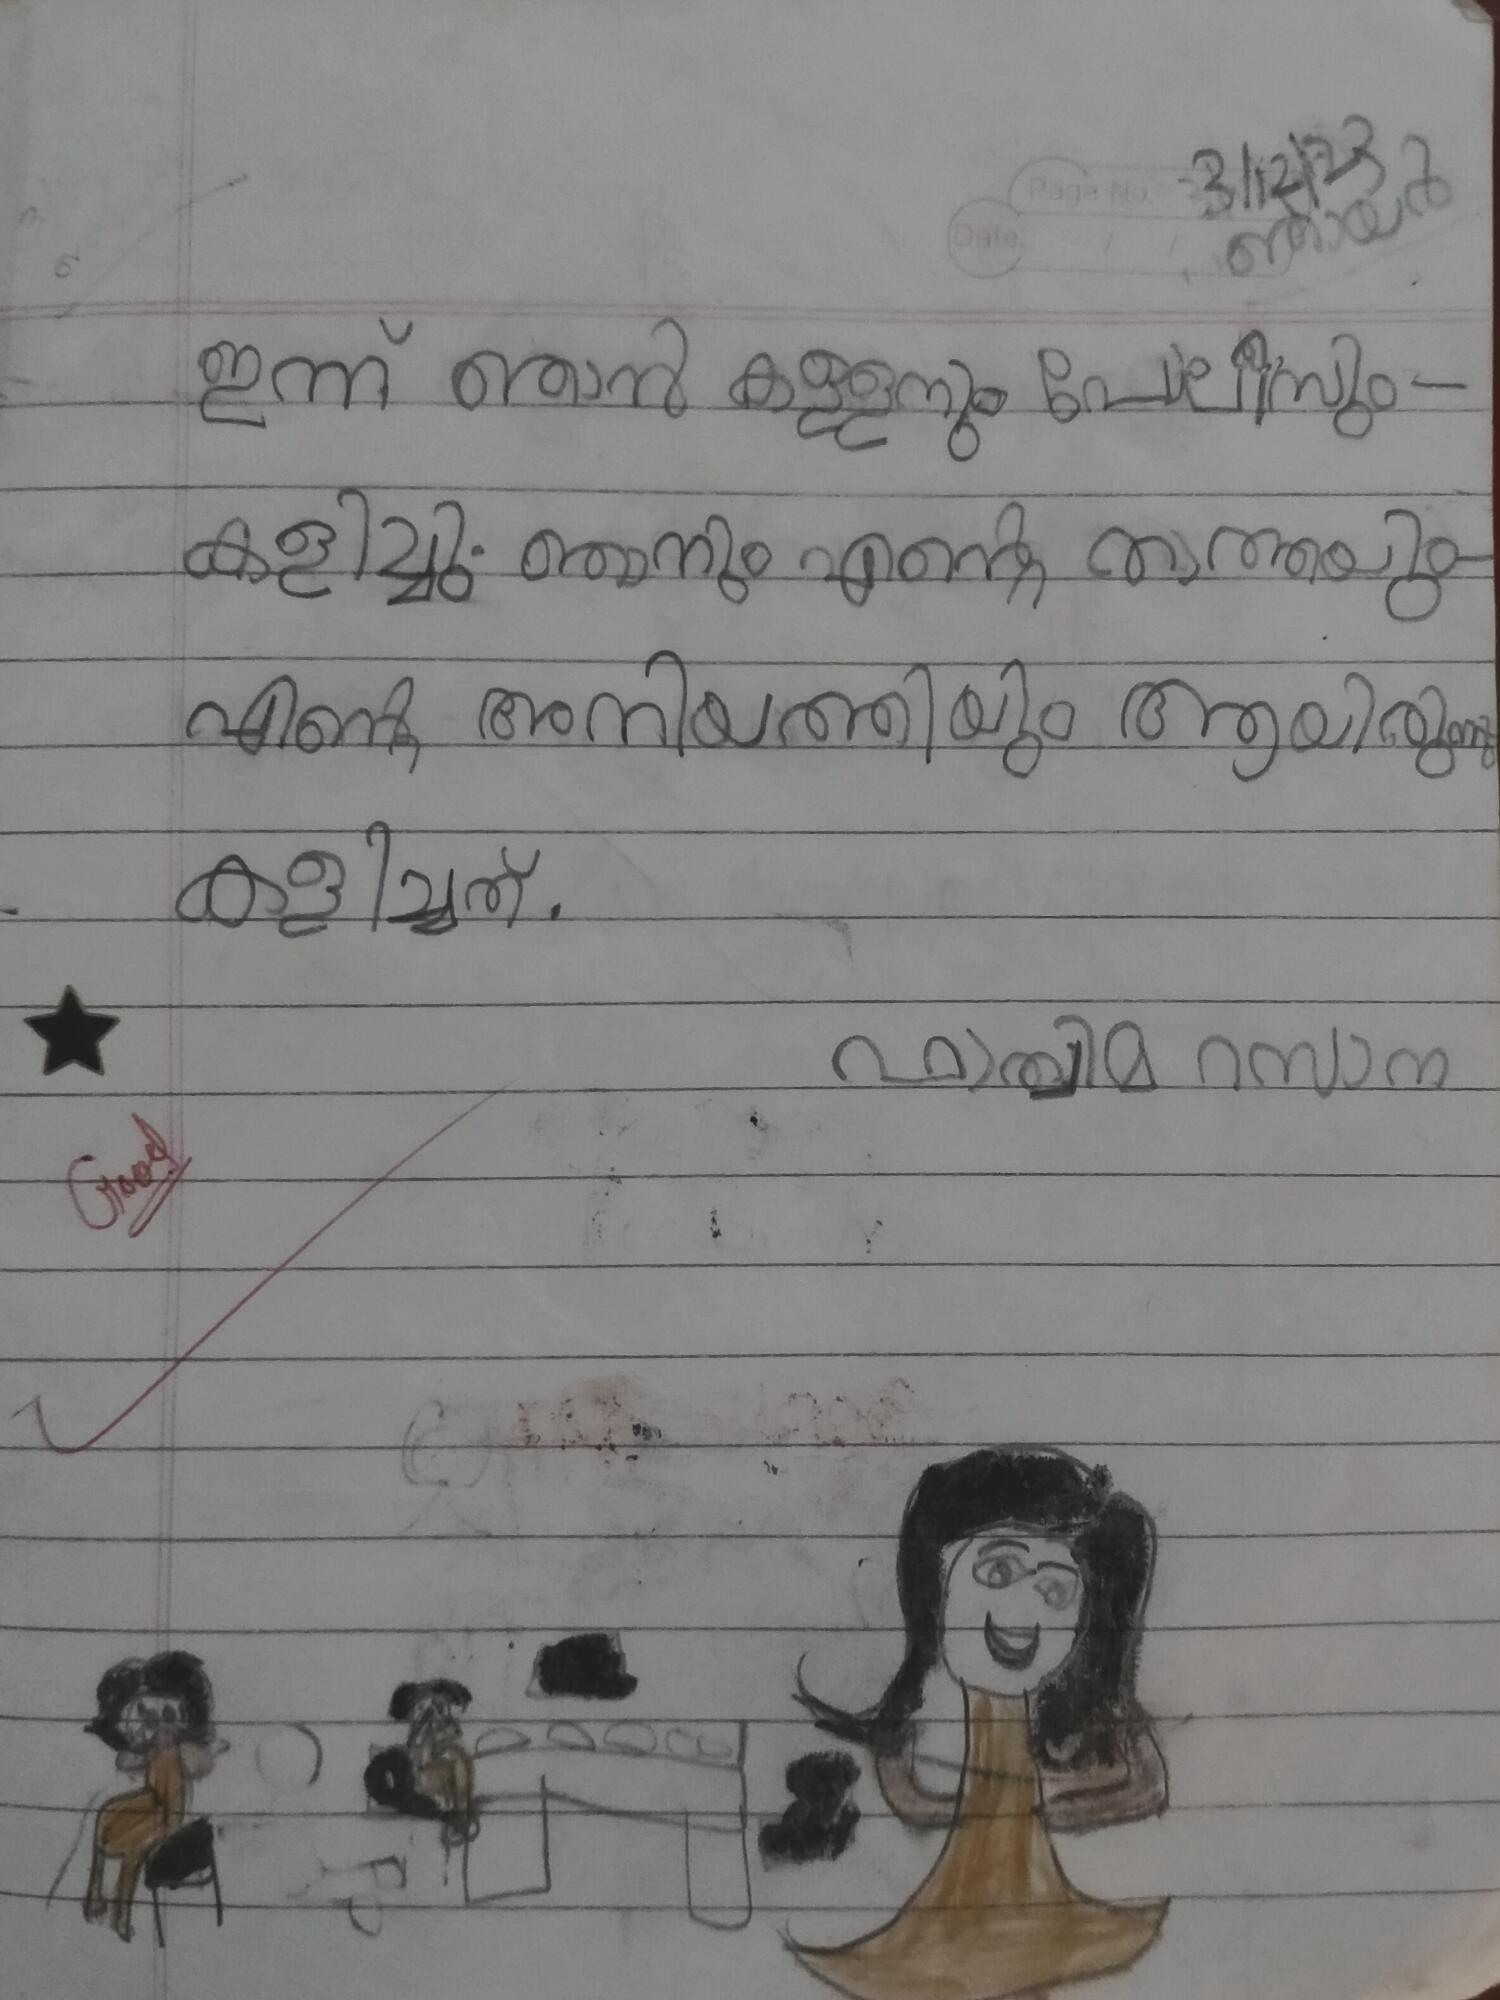 Page No.
3/12/23
Date
ഞായർ
ഇന്ന് ഞാൻ കള്ളനും പോലീസും
കളിച്ചു. ഞാനും എൻ്റെ താത്തയും
എൻ്റെ അനിയത്തിയും ആയിരുന്നു
കളിച്ചത്.
ഫാത്തിമ റസാന
Good